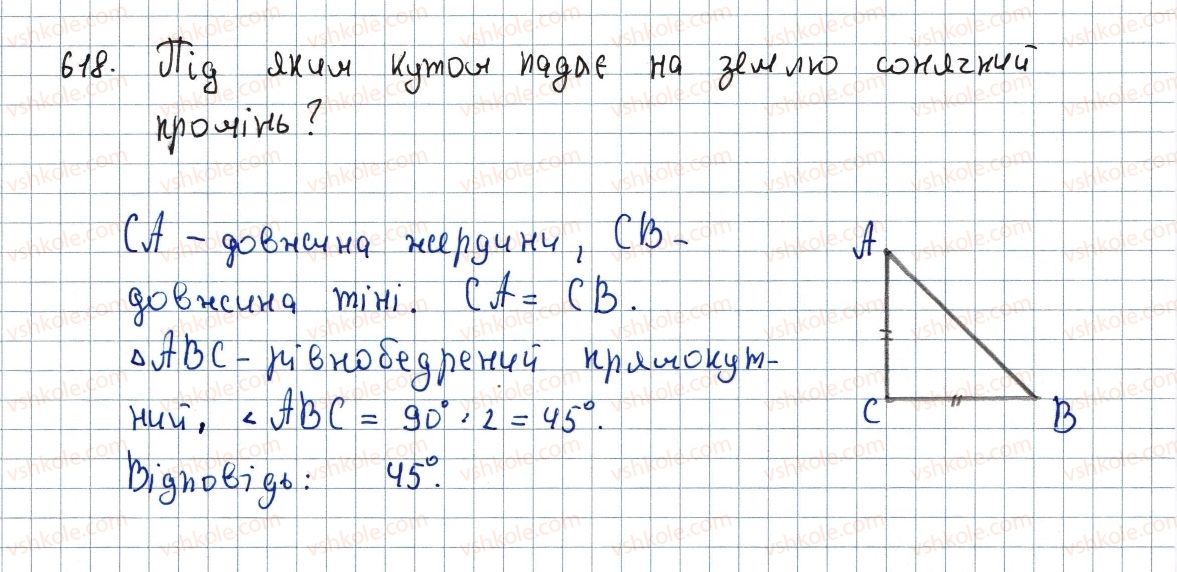 618. Під яким кутом падає на землю сонячний
промінь?
CA - довжина жердини, CB -
довжина тіні. CA = CB.
△ABC - рівнобедрений прямокут-
ний, < ABC = 90° : 2 = 45°.
Відповідь: 45°.
A
C
B
vshkole.com